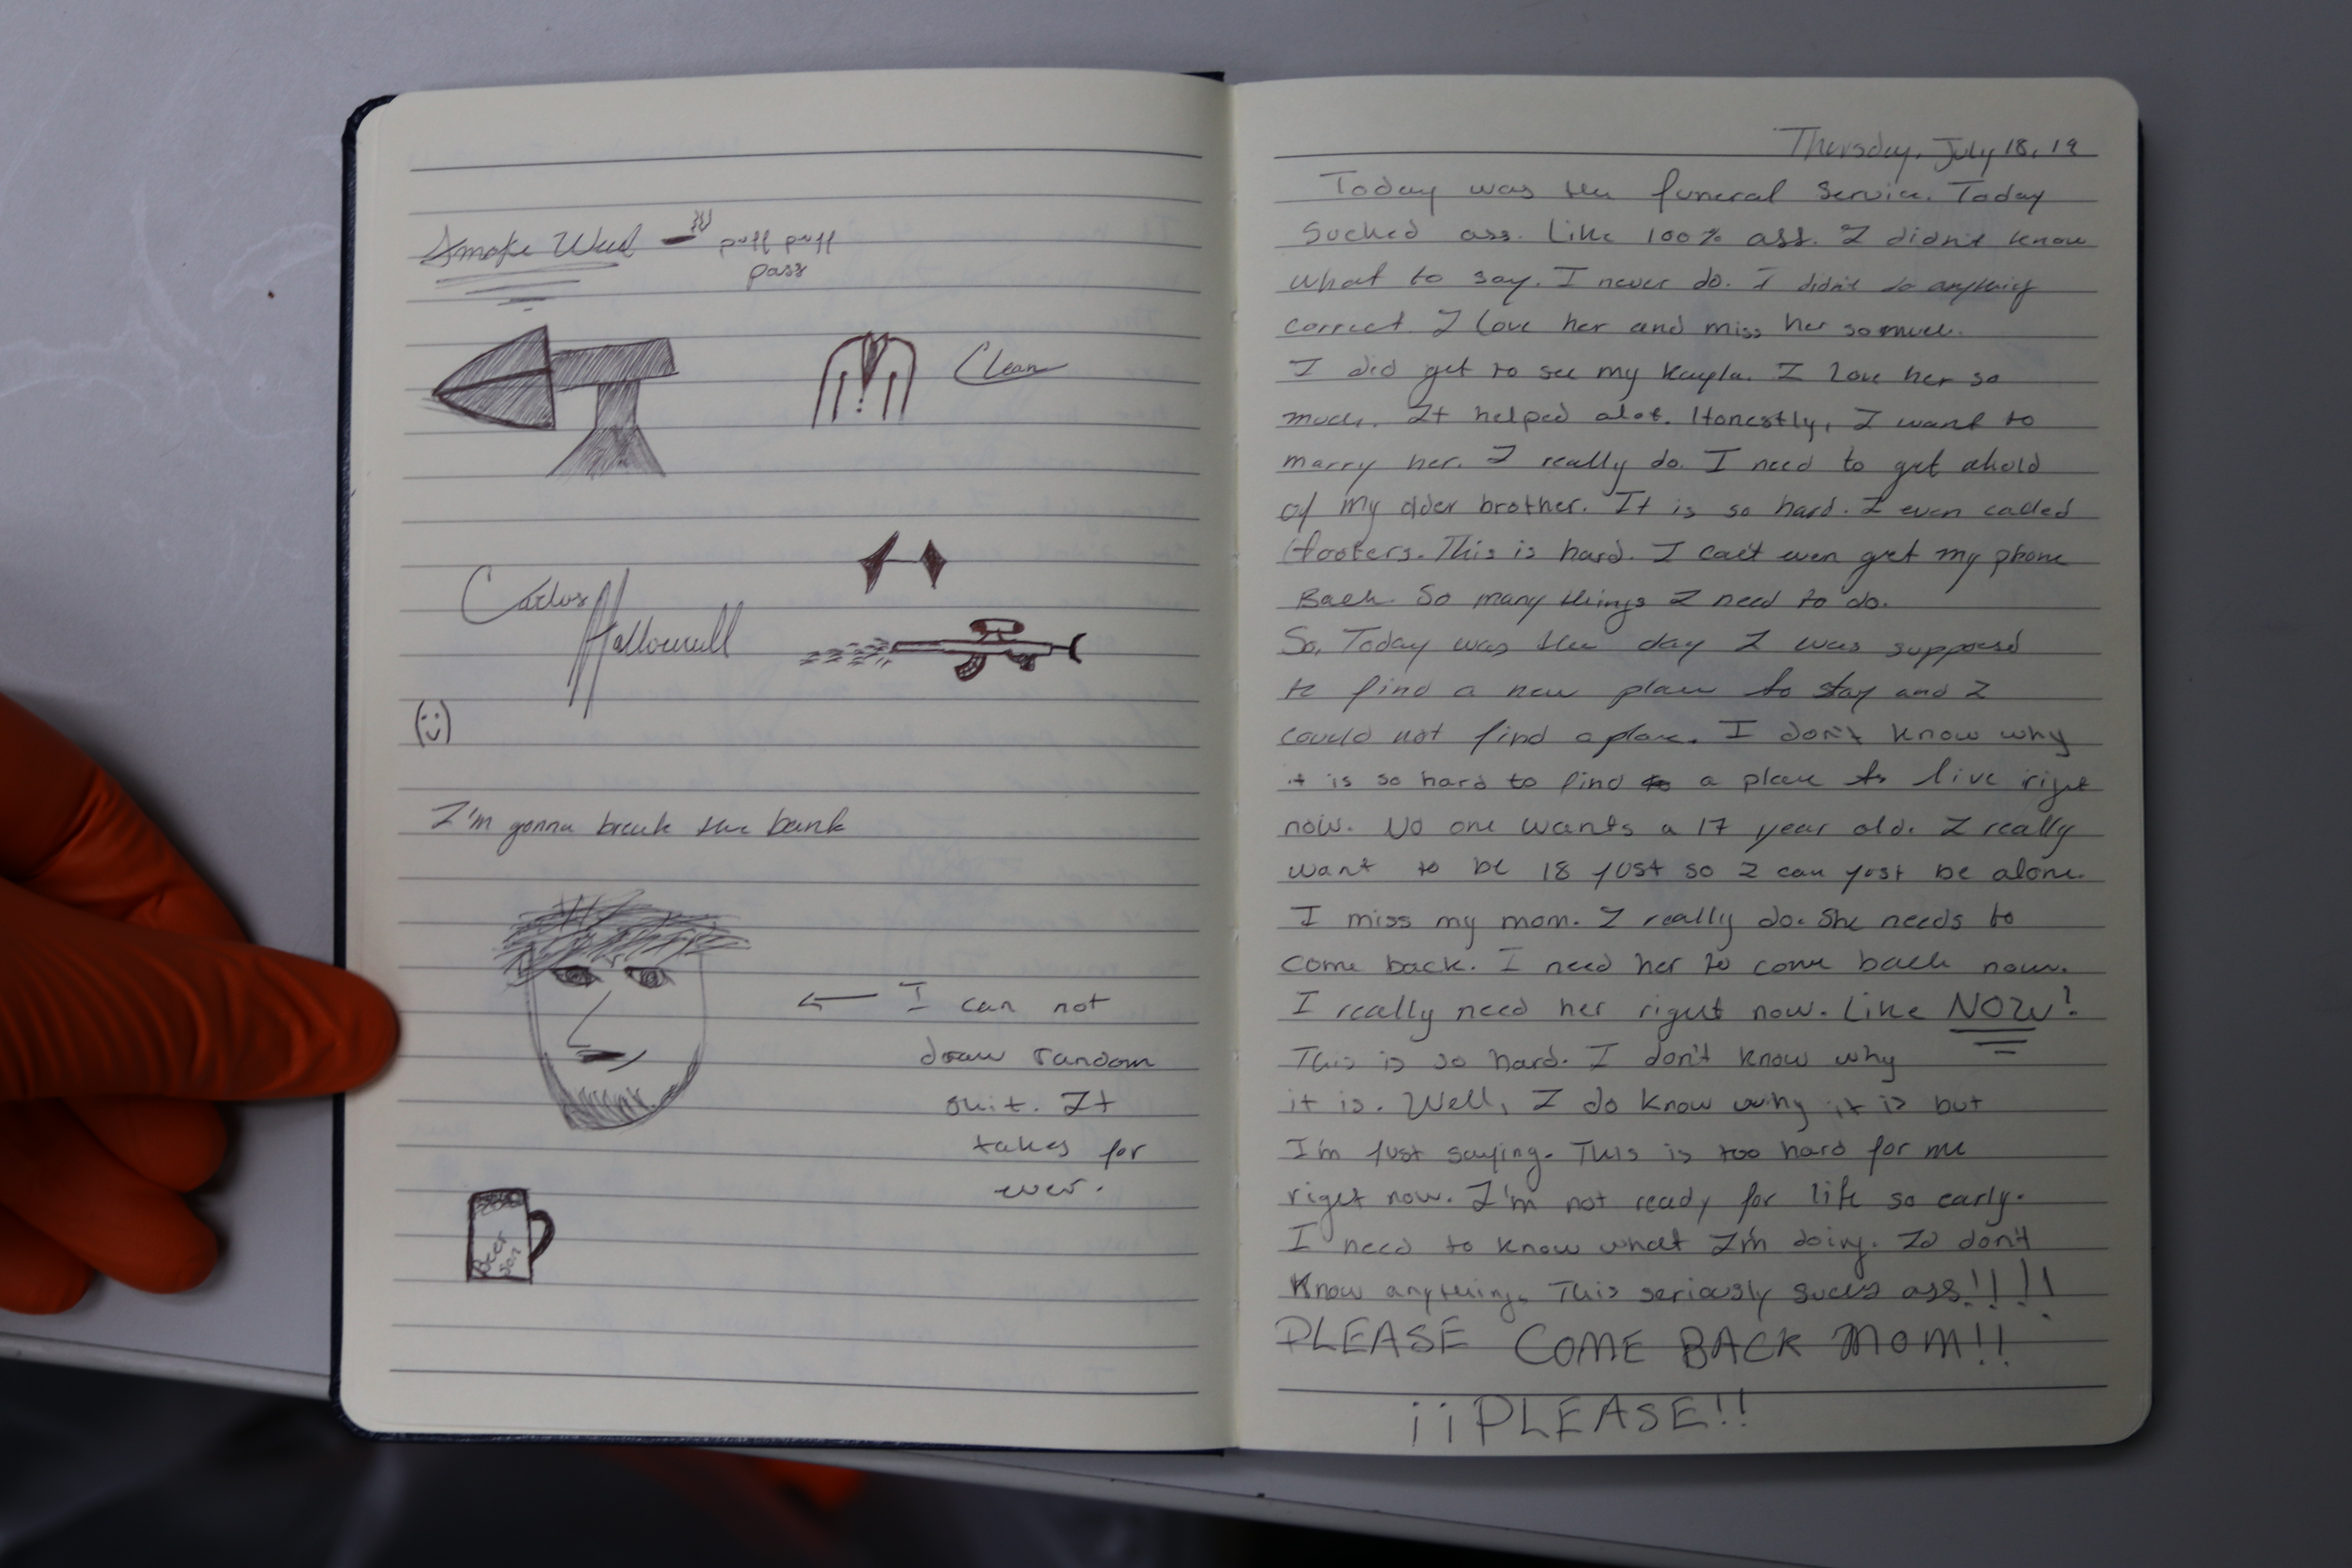 Smoke Weed
puff puff
pass
Clean
Carlos
Hallowell
I'm gonna break the bank
I can not
draw random
shit. It
takes for
ever.
Beer
Thursday, July 18, 19
Today was the funeral service. Today
sucked ass. Like 100% ass. I didn't know
what to say. I never do. I didn't do anything
correct. I love her and miss her so much.
I did get to see my Kayla. I love her so
much. It helped alot. Honestly, I want to
marry her. I really do. I need to get ahold
of my older brother. It is so hard. I even called
Hooters. This is hard. I can't even get my phone
Back. So many things I need to do.
So, Today was the day I was supposed
to find a new place to stay and I
could not find a place. I don't know why
it is so hard to find a place to live right
now. No one wants a 17 year old. I really
want to be 18 just so I can just be alone.
I miss my mom. I really do. She needs to
come back. I need her to come back now.
I really need her right now. Like NOW!
This is so hard. I don't know why
it is. Well, I do know why it is but
I'm just saying. This is too hard for me
right now. I'm not ready for life so early.
I need to know what I'm doing. Id don't
know anything. This seriously sucks ass!!!!
PLEASE COME BACK MOM!!
¡¡PLEASE!!